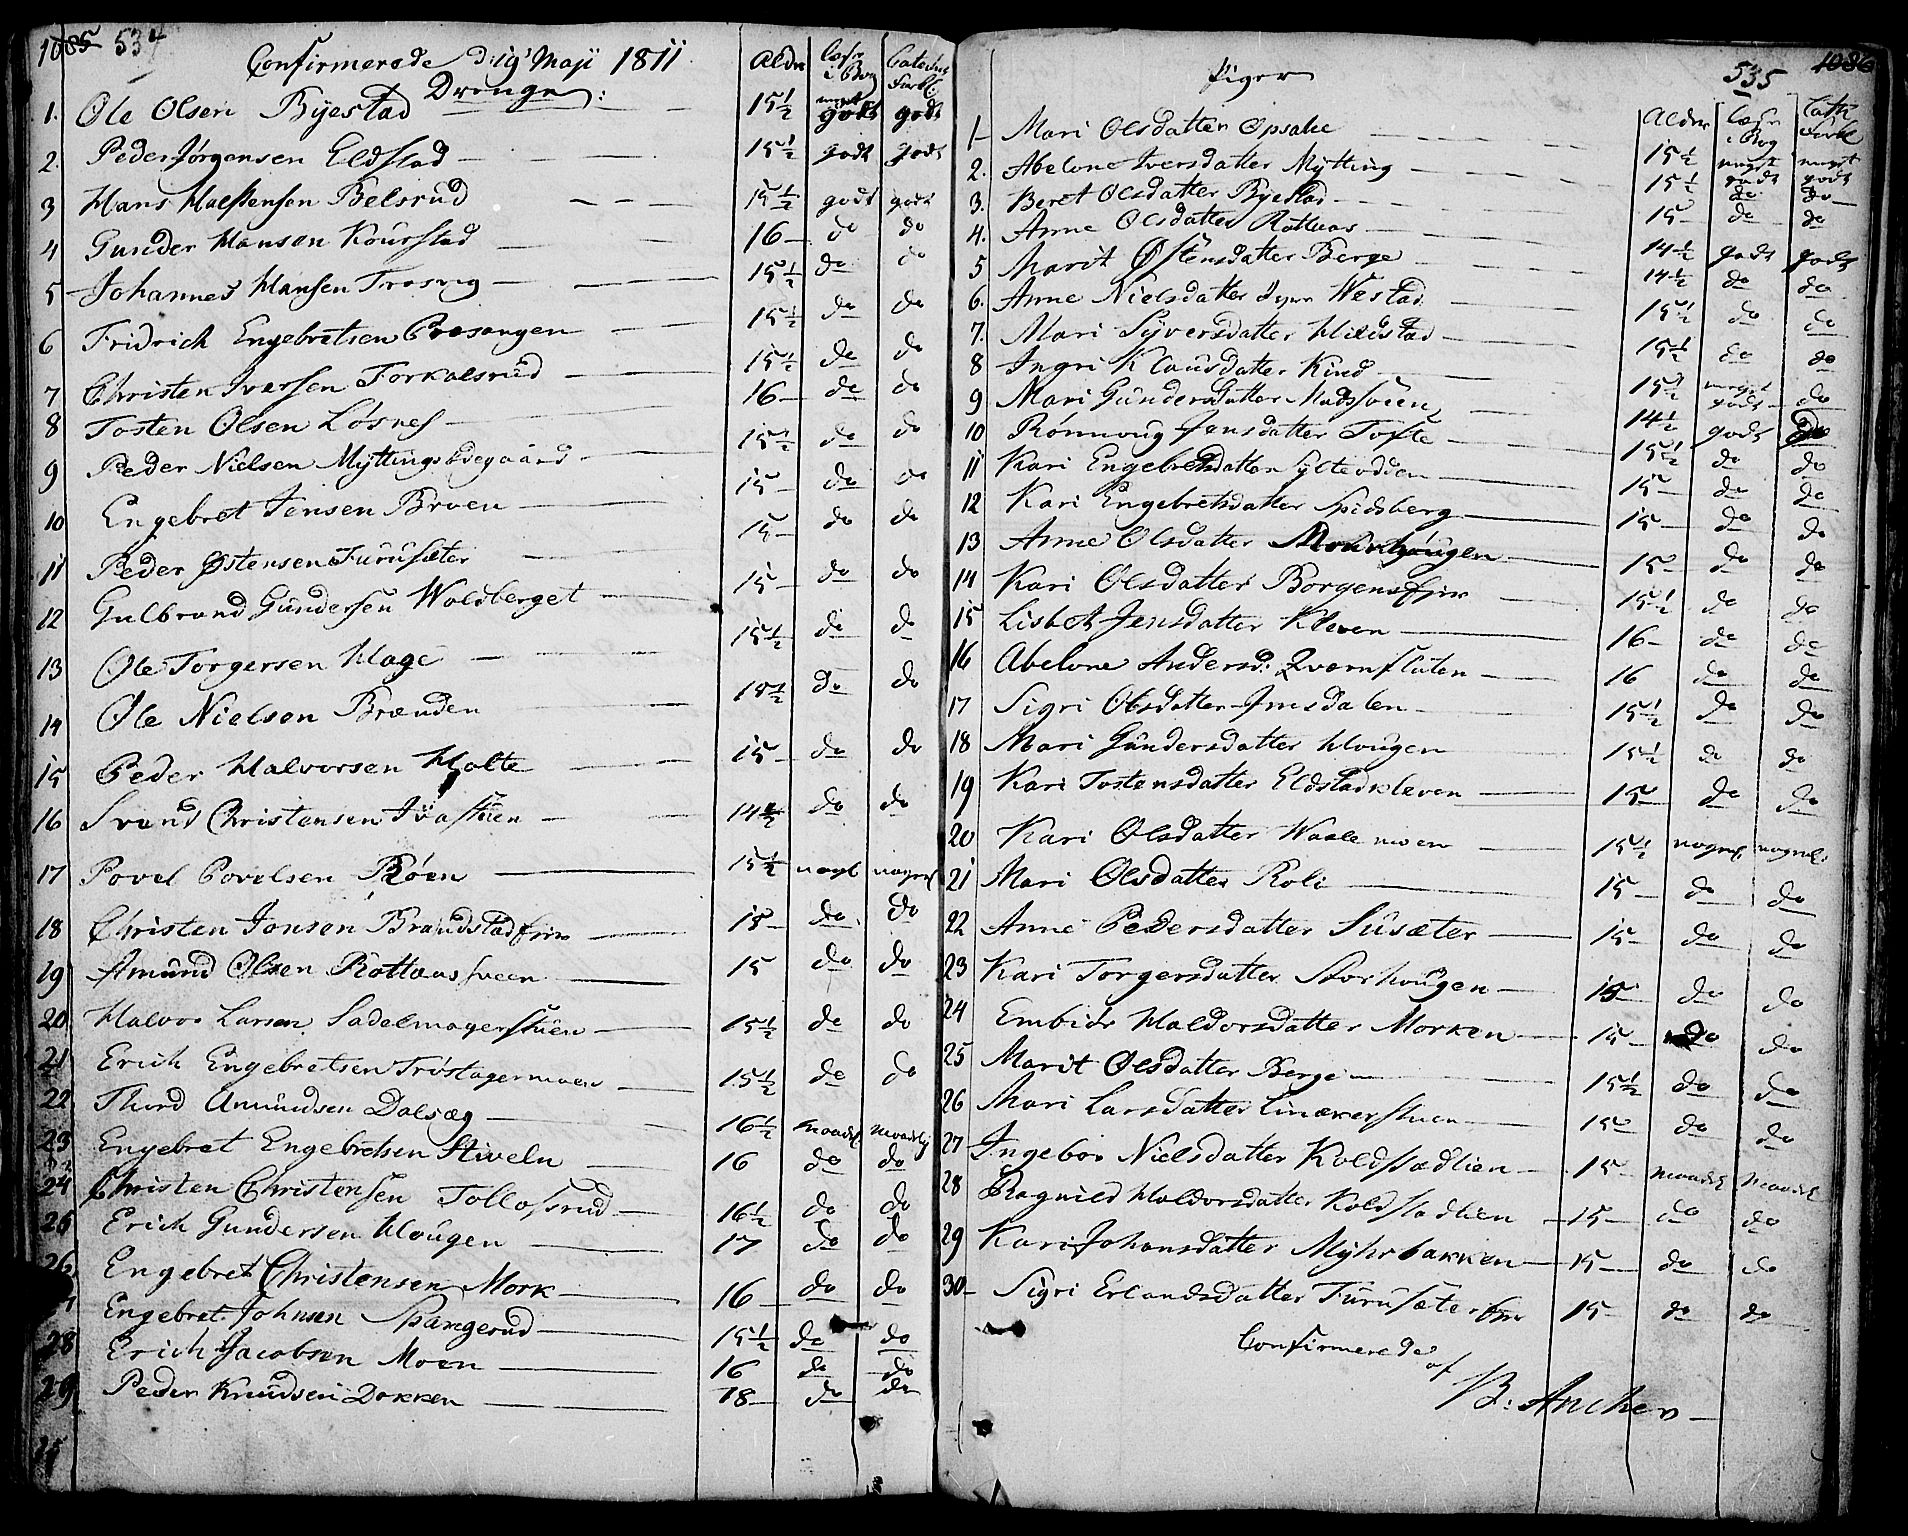 1085 534
Confirmerede D: 19 Maji 1811 Alder læser i Bog Catechis Forkl:
Drenge:
1. Ole Olsen Byestad 15½ meget godt godt
2. Peder Jørgensen Eldstad 15½ godt godt
3 Hans Halstensen Belsrud 15½ godt godt
4 Gunder Hansen Kourstad 16 do do
5 Johannes Hansen Trosvig 15½ do do
6 Fridrich Engebretsen Præsangen 15½ do do
7 Christen Iversen Torkalsrud 15½ do do
8 Tosten Olsen Løsnes 16 do do
9 Peder Nielsen Myttingsødegaard 15½ do do
10 Engebret Jensen Bruen 15 do do
11 Peder Østensen Furusæter 15 do do
12 Gulbrand Gundersen Woldberget 15 do do
13 Ole Torgersen Hage 15½ do do
14 Ole Nielsen Brænden 15½ do do
15 Peder Halvorsen Holte 15 do do
16 Svend Christensen 14½ do do
17 Povel Povelsen Røen 15½ nogl nogenl
18 Christen Jonsen Brandstad 15 do do
19 Amund Olsen Rottaassveen 15 do do
20 Halvor Larsen Sadelmagerstuen 15½ do do
21 Erich Engebretsen Trøstagermoen 15½ do do
22 Thord Amundsen Dalsæg 16½ maadel maadelig
23 Engebret Engebretsen Stiveln 16 do do
24 Christen Christensen Tollofsrud 16½ do do
25 Erich Gundersen Hougen 17 do do
26 Engebret Christensen Mork 16 do do
Engebret Johnsen Spangerud 15½ do do
28 Erich Jacobsen Moen 16 do do
29 Peder Knudsen Dokken 18 do do
535 1086
Piger Alder læser i Bog Cate Forkl
1 Mari Olsdatter Opsahe 15½ meget godt meget godt
2. Abelone Iversdatter Mytting 15½ do do
3. Beret Olsdatter Byestad 15 do do
4. Anne Olsdatter Rottaas 14½ godt godt
5 Marit Østensdatter Berge 14½ do do
6. Anne Nielsdatter Westad 15½ do do
7. Mari Syversdatter Hildestad 15½ do do
8 Ingri Klausdatter Kind 15½ meget godt do
9 Mari Gundersdatter Madssveen 14½ godt do
10 Rønnoug Jensdatter Tofte 15½ do do
11 Kari Engebretsdatter Sylteodden 15 do do
12 Kari Engebretsdatter Spidsberg 15 do do
13 Anne Olsdatter 15 do do
14 Kari Olsdatter Borgen 15½ do do
15 Lisbet Jensdatter Kleven 16 do do
16 Abelone Andersd: Qvernfluten 16 do do
17 Sigri Olsdatter Imsdalen 15½ do do
18 Mari Gundersdatter Hougen 15½ do do
19 Kari Tostensdatter Eldstadkleven 15 do do
20 Kari Olsdatter Waalemoen 15½ nogenl nogenl:
21 Mari Olsdatter Roli 15 do do
22 Anne Pedersdatter Susæter 15 do do
23 Kari Torgersdatter Storhougen 15 do do
24 Embiør Haldorsdatter Morken 15 do do
25 Marit Olsdatter Berge 15½ do do
26 Mari Larsdatter Linækerstuen 15 do do
27 Ingebor Nielsdatter Koldstadlien 15 maadel maadel
28 Ragnild Haldorsdatter Koldstadlien 15 do do
29 Kari Johansdatter Myhrbakken 15 do do
30 Sigri Erlandsdatter Furusæter 15 do do
Confirmerede
af
B: Ancher